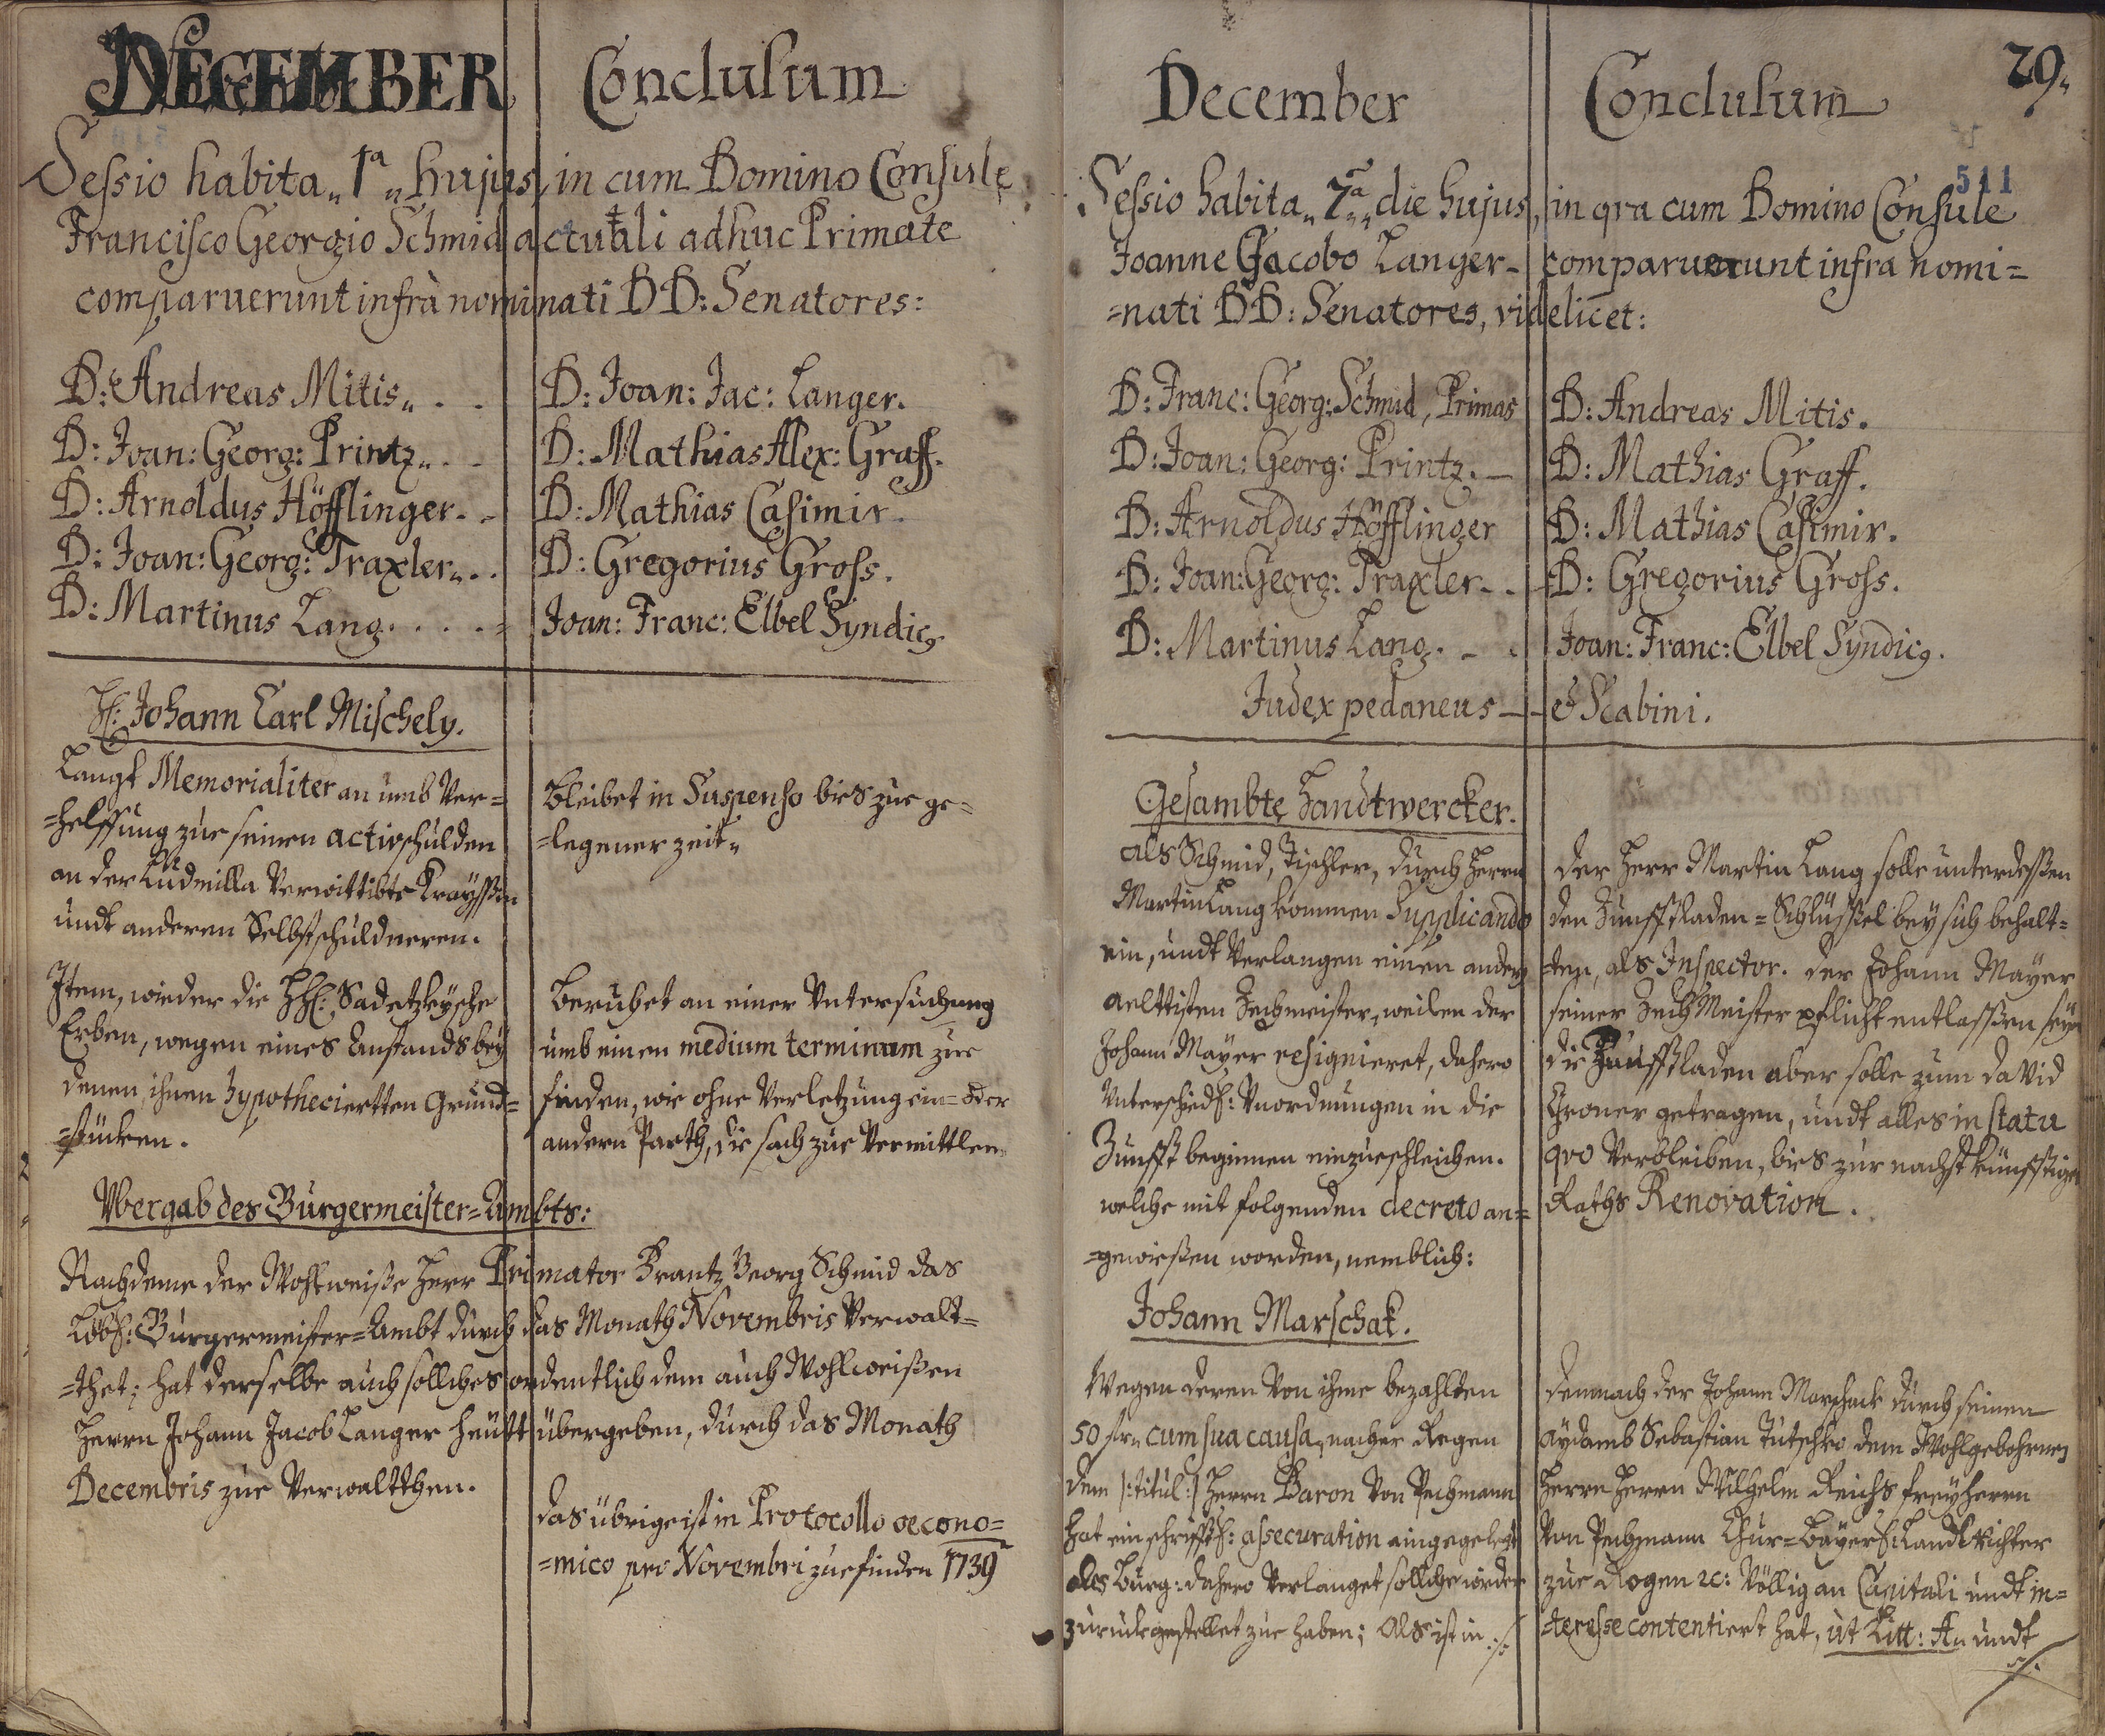 DECEMBER
Conclusum
Sessio habita„ 1ª „ hujus, in cum Domino Consule
Francisco Georgio Schmid actuali adhuc Primate
comparuerunt infrà nominati DD: Senatores:
D: Andreas Mitis„ . .
D: Joan: Georg: Printz„ . .
D: Arnoldus Höfflinger. .
D: Joan: Georg: Traxler„ . .
D: Martinus Lang. . . . .
D: Joan: Jac: Langer.
D: Mathias Alex: Graff.
D: Mathias Casimir.
D: Gregorius Gross.
Joan: Franc: Elbel Syndicg
H: Johann Carl Mischely.
Langt Memorialiter an umb Ver=
=helffung zue seinen activschulden
an der Ludmilla Verwittibte Krayssin
undt anderen Selbstschuldneren.
Bleibet in Suspenso bies zue ge=
=legener zeit„
Item, wieder die HH: Sadetzkysche
Erben, wegen eines Anstands bey
denen ihnen hypotheciertten Grund=
=stücken.
Beruhet an einer Untersuchung
umb einen medium terminum zue
finden, wie ohne Verletzung ein= oder
andern Parth, die sach zue Vermittlen.
Ubergab des Burgermeister=Ambts:
Nachdeme der Wohlweise Herr Primator Frantz Georg Schmid das
Löbl: Burgermeister=Ambt durch das Monath Novembris Verwalt=
=thet; hat derselbe auch solliches ordentlich dem auch Wohlweisen
Herrn Johann Jacob Langer heütt übergeben, durch das Monath
Decembris zue Verwaltthen.
das übrige ist in Protocollo oecono=
=mico pro Novembri zue finden 1739
December
Conclusum
29.
511
Sessio habita„ 7ª „ die hujus, in qra cum Domino Consule
Joanne Jacobo Langer - comparuerunt infra nomi=
=nati DD: Senatores, videlicet:
D: Franc: Georg: Schmid, Primas
D: Joan: Georg: Printz. -
D: Arnoldus Höfflinger
D: Joan: Georg: Traxler - .
D: Martinus Lang. - .
D: Andreas Mitis.
D: Mathias Graff.
D: Mathias Casimir.
D: Gregorius Gross.
Joan: Franc: Elbel Syndicg.
Judex pedaneus - - & Scabini.
Gesambte Handtwercker.
als Schmid, Tischler, durch Herrn
Martin Lang kommen Supplicando
ein, undt Verlangen einen andern
aelttisten Zechmeister, weilen der
Johann Mayer resignieret, dahero
Unterschiedl: Unordnungen in die
Zunfft beginnen einzueschleichen.
welche mit folgenden decreto an=
=gewießen worden, nemblich:
Der Herr Martin Lang solle unterdessen
den Zunfftladen=Schlüssel bey sich behalt=
=ten, als Inspector. der Johann Mayer
seiner Zech Meister pflicht entlassen seyn
die Zunfftladen aber solle zum david
Groner getragen, undt alles in statu
qvo Verbleiben, bies zur nachst künfftigen
Raths Renovation.
Johann Marschak.
Wegen deren Von ihme bezahlten
50 fl„ cum sua causa„ nacher Regen
dem /:titul:/ Herrn Baron Von Pechmann
hat ein schrifftl: assecuration eingegelegt
als Burg: dahero Verlanget solliche wieder
zuruckgestellet zue haben; Als ist in ./.
demnach der Johann Marschack durch seinen
Aydamb Sebastian Tutschko dem Wohlgebohrnen
Herrn Herrn Wilhelm Reichs freyherrn
Von Pechmann Chur=Bayerl: Landt Richter
zue Regen &c: Völlig an Capitali undt in=
=teresse contentiert hat, ut Litt: A„ undt
./.